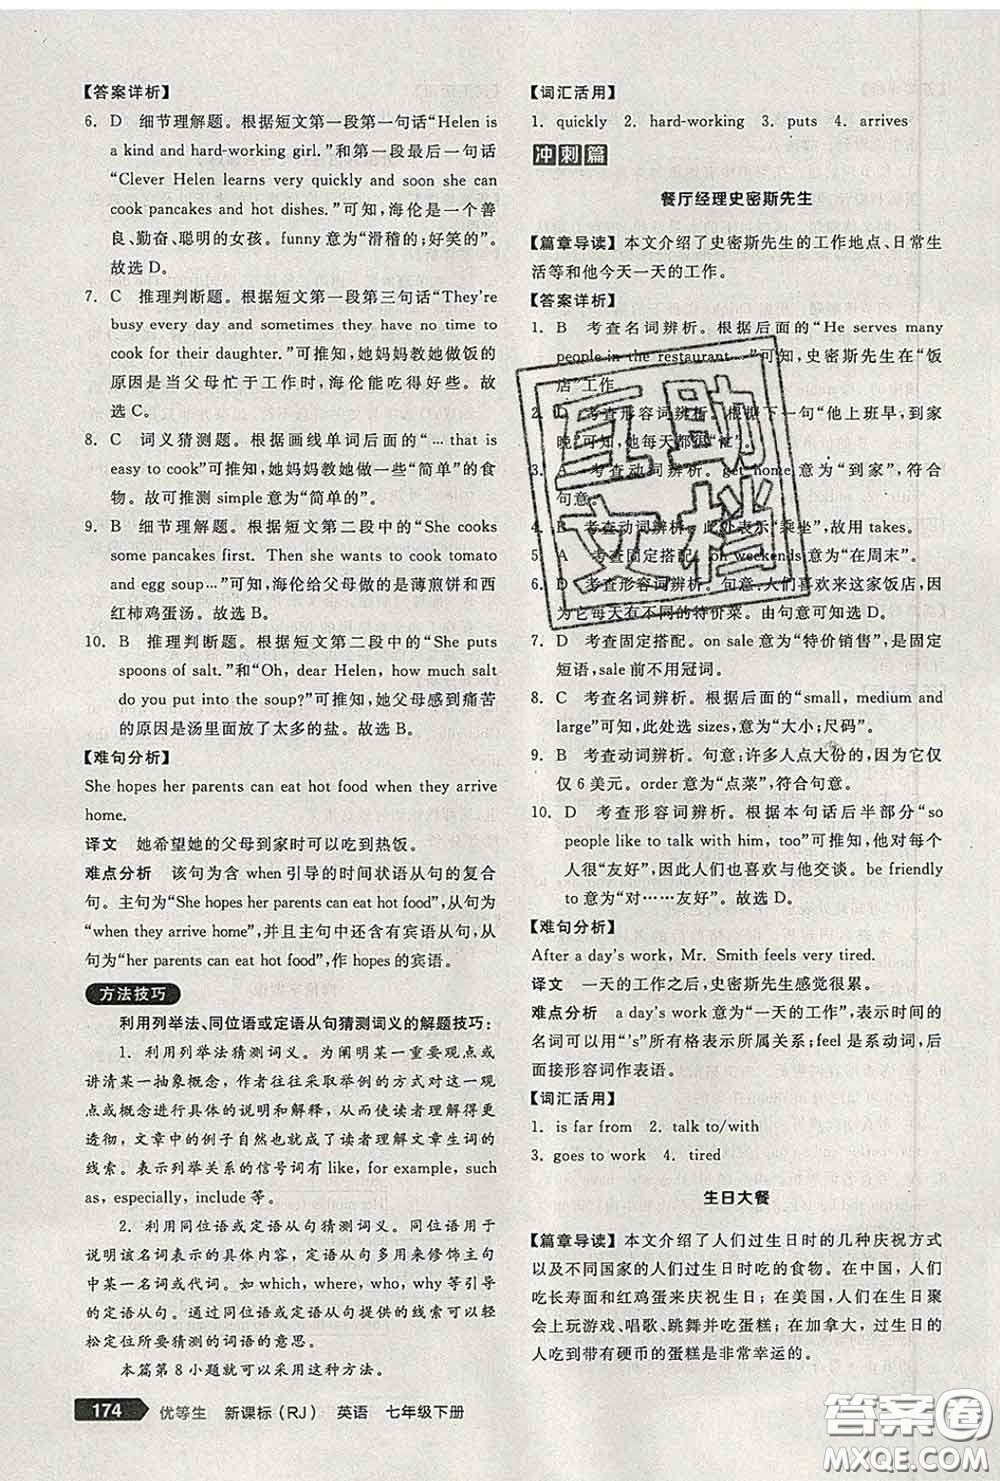 【答案详析】
6. D　细节理解题。根据短文第一段第一句话“Helen is
a kind and hard-working girl.”和第一段最后一句话
“Clever Helen learns very quickly and soon she can
cook pancakes and hot dishes.”可知，海伦是一个善
良、勤奋、聪明的女孩。funny 意为“滑稽的；好笑的”。
故选 D。
7. C　推理判断题。根据短文第一段第三句话“They're
busy every day and sometimes they have no time to
cook for their daughter.”可推知，她妈妈教她做饭的
原因是当父母忙于工作时，海伦能吃得好些。故
选 C。
8. C　词义猜测题。根据画线单词后面的“… that is
easy to cook”可推知，她妈妈教她做一些“简单”的食
物。故可推测 simple 意为“简单的”。
9. B　细节理解题。根据短文第二段中的“She cooks
some pancakes first. Then she wants to cook tomato
and egg soup…”可知，海伦给父母做的是薄煎饼和西
红柿鸡蛋汤。故选 B。
10. B　推理判断题。根据短文第二段中的“She puts
spoons of salt.”和“Oh, dear Helen, how much salt
do you put into the soup?”可推知，她父母感到痛苦
的原因是汤里面放了太多的盐。故选 B。
【难句分析】
She hopes her parents can eat hot food when they arrive
home.
译文　她希望她的父母到家时可以吃到热饭。
难点分析　该句为含 when 引导的时间状语从句的复合
句。主句为“She hopes her parents can eat hot food”，从句为
“when they arrive home”，并且主句中还含有宾语从句，从
句为“her parents can eat hot food”，作 hopes 的宾语。
方法技巧
利用列举法、同位语或定语从句猜测词义的解题技巧：
1. 利用列举法猜测词义。为阐明某一重要观点或
讲清某一抽象概念，作者往往采取举例的方式对这一观
点或概念进行具体的说明和解释，从而使读者理解得更
透彻，文章中的例子自然也就成了读者理解文章生词的
线索。表示列举关系的信号词有 like，for example，such
as，especially，include 等。
2. 利用同位语或定语从句猜测词义。同位语用于
说明该名词表示的具体内容，定语从句多用来修饰主句
中某一名词或代词。如 which，where，who，why 等引导
的定语从句。通过同位语或定语从句提供的线索可以轻
松定位所要猜测的词语的意思。
本篇第 8 小题就可以采用这种方法。
【词汇活用】
1. quickly　2. hard-working　3. puts　4. arrives
冲刺篇
餐厅经理史密斯先生
【篇章导读】本文介绍了史密斯先生的工作地点、日常生
活等和他今天一天的工作。
【答案详析】
1. B　考查名词辨析。根据后面的“He serves many
people in the restaurant…”可知，史密斯先生在“饭
店”工作。
2. D　考查形容词辨析。根据下一句“他上班早，到家
晚”可知，他每天都很“忙”。
3. A　考查动词辨析。get home 意为“到家”，符合
句意。
4. B　考查动词辨析。此处表示“乘坐”，故用 takes。
5. A　考查固定搭配。on weekends 意为“在周末”。
6. D　考查形容词辨析。句意：人们喜欢来这家饭店，
因为它每天有不同的特价菜。由句意可知选 D。
7. D　考查固定搭配。on sale 意为“特价销售”，是固定
短语，sale 前不用冠词。
8. C　考查名词辨析。根据后面的“small, medium and
large”可知，此处选 sizes，意为“大小；尺码”。
9. B　考查动词辨析。句意：许多人点大份的，因为它仅
仅 6 美元。order 意为“点菜”，符合句意。
10. D　考查形容词辨析。根据本句话后半部分“so
people like to talk with him, too”可推知，他对每个
人很“友好”，因此人们也喜欢与他交谈。be friendly
to 意为“对……友好”。故选 D。
【难句分析】
After a day's work, Mr. Smith feels very tired.
译文　一天的工作之后，史密斯先生感觉很累。
难点分析　a day's work 意为“一天的工作”，表示时间的
名词可以用“'s”所有格表示所属关系；feel 是系动词，后
面接形容词作表语。
【词汇活用】
1. is far from　2. talk to/with
3. goes to work　4. tired
生日大餐
【篇章导读】本文介绍了人们过生日时的几种庆祝方式
以及不同国家的人们过生日时吃的食物。在中国，人们
吃长寿面和红鸡蛋来庆祝生日；在美国，人们在生日聚
会上玩游戏、唱歌、跳舞并吃蛋糕；在加拿大，过生日
的人吃到带有硬币的蛋糕是非常幸运的。
174　优等生　新课标（RJ）　英语　七年级下册
互助
文档
答案圈
MXQE.COM